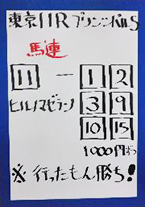 東京11R プリンシパルS
馬連
11 ー 1 2
ヒルノマゼラン 3 9
10 15
1000円ずつ
※行ったもん勝ち!